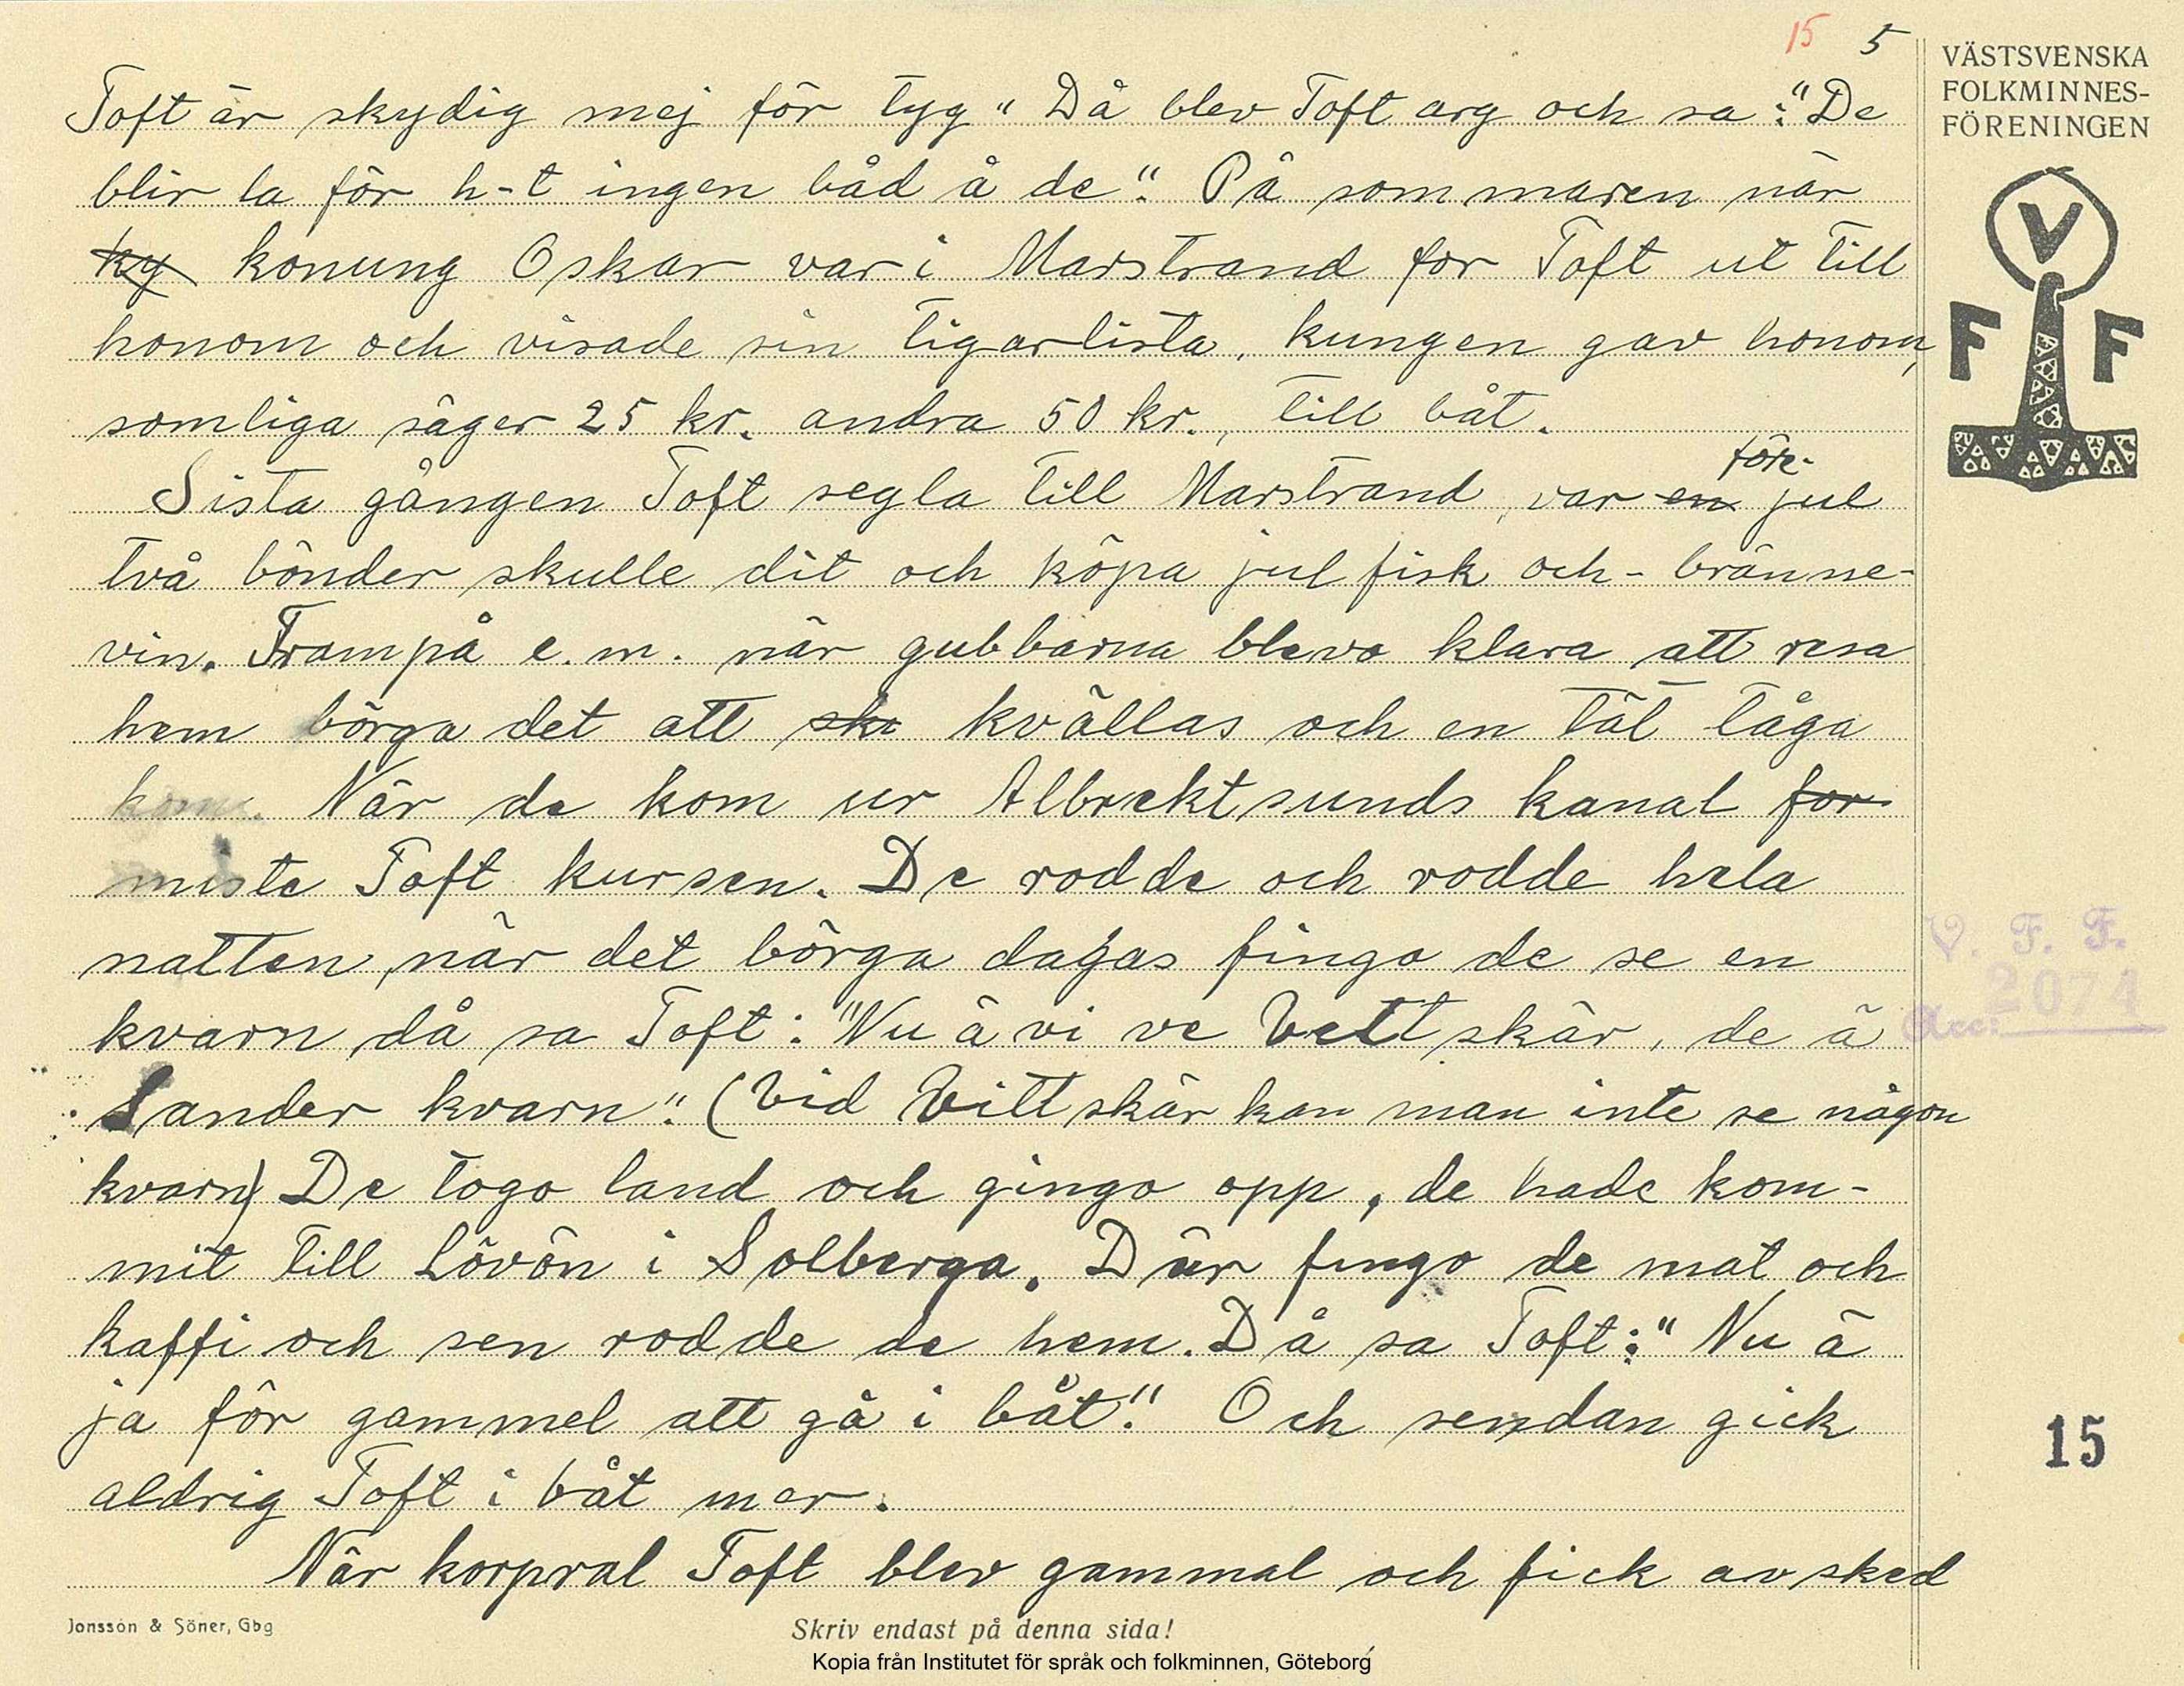 15 5
VÄSTSVENSKA
FOLKMINNES-
FÖRENINGEN
V
F F
Toft är skydig mej för tyg" Då blev Toft arg och sa: "De
blir la för h-t ingen båd å de". På sommaren när
ky konung Oskar var i Marstrand for Toft ut till
honom och visade sin tigarlista, kungen gav honom,
somliga säger 25 kr. andra 50 kr., till båt.
före-
Sista gången Toft segla till Marstrand, var en jul
två bönder skulle dit och köpa julfisk och - bränne-
vin. Frampå e.m. när gubbarna blevo klara att resa
hem börga det att ske kvällas och en tät tåga
kom. När de kom ur Albrektsunds kanal for
miste Toft kursen. De rodde och rodde hela
natten, när det börga dagas fingo de se en
kvarn, då sa Toft: "Nu ä vi ve Vettskär, de ä
Sander kvarn". (Vid Vittskär kan man inte se någon
kvarn) De togo land och gingo opp, de hade kom-
mit till Lövön i Solberga. Där fingo de mat och
kaffi och sen rodde de hem. Då sa Toft: "Nu ä
ja för gammel att gå i båt". Och sendan gick
aldrig Toft i båt mer.
När korpral Toft blev gammal och fick avsked
V. F. F.
2071
Acc:
15
Jonsson & Söner, Gbg
Skriv endast på denna sida!
Kopia från Institutet för språk och folkminnen, Göteborg